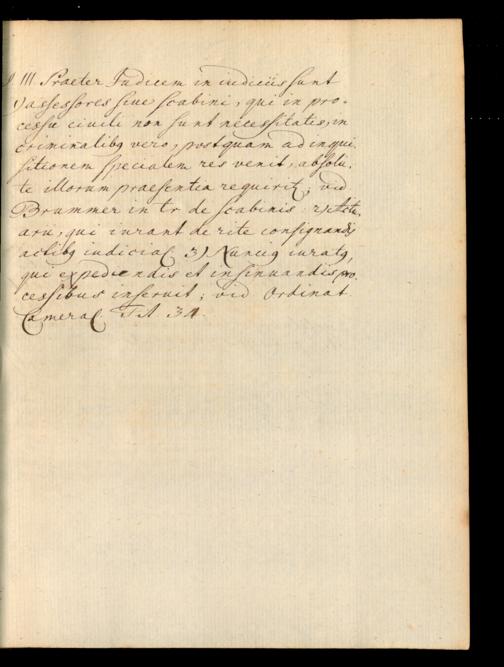 § III Praeter Judicem in iudiciis sunt
1) assessores sive scabini, qui in pro-
cessu civili non sunt necessitatis, in
criminalibq vero, postquam ad inqui
sitionem specialem res venit, absolu-
te illorum praesentia requirit; vid
Brummer in tr de scabinis. 2) Actu
arii, qui iurant de rite consignandis
actibq iudicial 3) Nunciq iuratq,
qui expediendis et insinuandis pro-
cessibus inservit; vid Ordinat
Cameral Tit 34.